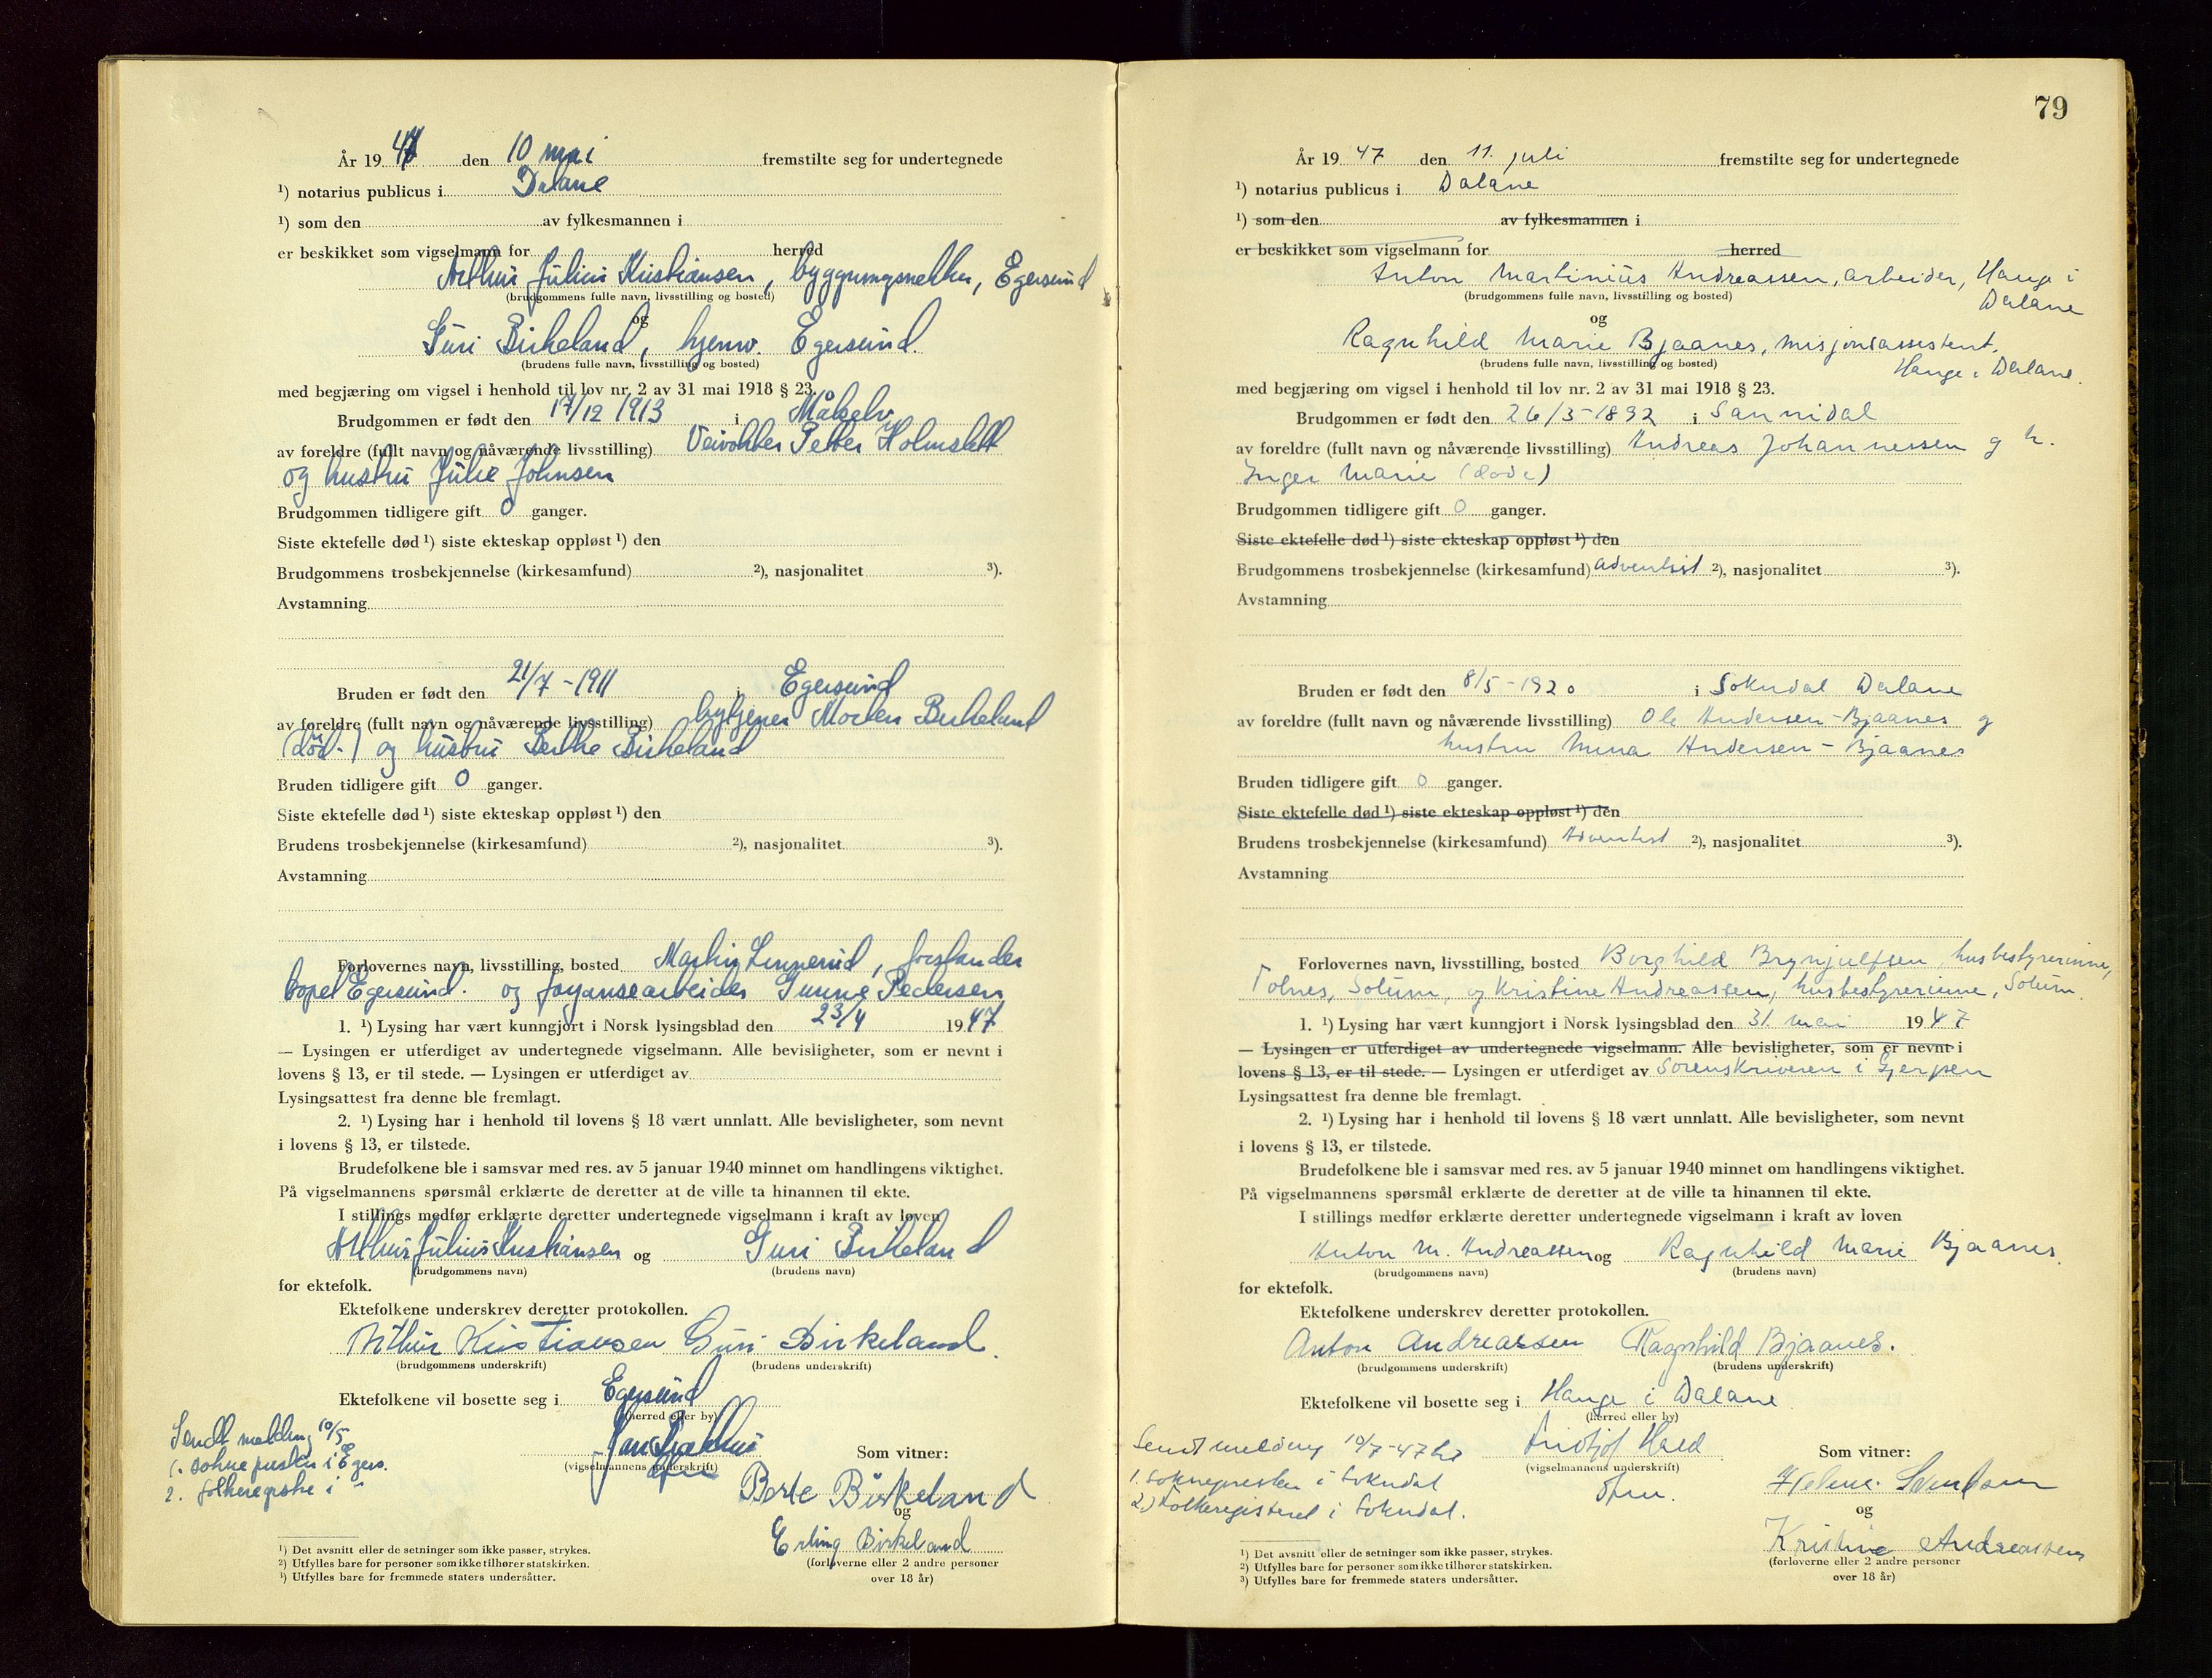 År 19 47 den 10 mai fremstilte seg for undertegnede
¹) notarius publicus i Dalane
¹) som den av fylkesmannen i
er beskikket som vigselmann for herred
Arthur Julius Kristiansen, byggningssnekker, Egersund
(brudgommens fulle navn, livsstilling og bosted)
og
Guri Birkeland, hjemv. Egersund.
(brudens fulle navn, livsstilling og bosted)
med begjæring om vigsel i henhold til lov nr. 2 av 31 mai 1918 § 23.
Brudgommen er født den 17/12 1913 i Målselv
av foreldre (fullt navn og nåværende livsstilling) Veivokter Petter Holmslett
og hustru Julie Johnsen
Brudgommen tidligere gift 0 ganger.
Siste ektefelle død ¹) siste ekteskap oppløst ¹) den
Brudgommens trosbekjennelse (kirkesamfund) ²), nasjonalitet ³).
Avstamning
Bruden er født den 21/7 - 1911 i Egersund
av foreldre (fullt navn og nåværende livsstilling) Morten Birkeland
(død.) og hustru Berthe Birkeland
Bruden tidligere gift 0 ganger.
Siste ektefelle død ¹) siste ekteskap oppløst ¹) den
Brudens trosbekjennelse (kirkesamfund) ²), nasjonalitet ³).
Avstamning
Forlovernes navn, livsstilling, bosted Martin Linnerud, forstander
bopel Egersund. og fayansearbeider Gunne Pedersen
1. ¹) Lysing har vært kunngjort i Norsk lysingsblad den 23/4 1947
— Lysingen er utferdiget av undertegnede vigselmann. Alle bevisligheter, som er nevnt i
lovens § 13, er til stede. — Lysingen er utferdiget av
Lysingsattest fra denne ble fremlagt.
2. ¹) Lysing har i henhold til lovens § 18 vært unnlatt. Alle bevisligheter, som nevnt
i lovens § 13, er tilstede.
Brudefolkene ble i samsvar med res. av 5 januar 1940 minnet om handlingens viktighet.
På vigselmannens spørsmål erklærte de deretter at de ville ta hinannen til ekte.
I stillings medfør erklærte deretter undertegnede vigselmann i kraft av loven
Arthur Julius Kristiansen og Guri Birkeland
(brudgommens navn) (brudens navn)
for ektefolk.
Ektefolkene underskrev deretter protokollen.
Arthur Kristiansen Guri Birkeland.
(brudgommens underskrift) (brudens underskrift)
Ektefolkene vil bosette seg i Egersund
(herred eller by)
Sendt melding 10/5
1. soknepresten i Egers.
2. folkeregistre i "
(vigselmannens underskrift)
Som vitner:
Berte Birkeland
og
Erling Birkeland
(forloverne eller 2 andre personer
over 18 år)
¹) Det avsnitt eller de setninger som ikke passer, strykes.
²) Utfylles bare for personer som ikke tilhører statskirken.
³) Utfylles bare for fremmede staters undersåtter.
79
År 19 47 den 11. juli fremstilte seg for undertegnede
¹) notarius publicus i Dalane
¹) som den av fylkesmannen i
er beskikket som vigselmann for herred
Anton Martinius Andreassen, arbeider, Hauge i
Dalane
(brudgommens fulle navn, livsstilling og bosted)
og
Ragnhild Marie Bjaanes, misjonsassistent,
Hauge i Dalane.
(brudens fulle navn, livsstilling og bosted)
med begjæring om vigsel i henhold til lov nr. 2 av 31 mai 1918 § 23.
Brudgommen er født den 26/3-1892 i Sannidal
av foreldre (fullt navn og nåværende livsstilling) Andreas Johannessen g h.
Inger Marie (døde)
Brudgommen tidligere gift 0 ganger.
Siste ektefelle død ¹) siste ekteskap oppløst ¹) den
Brudgommens trosbekjennelse (kirkesamfund) adventist ²), nasjonalitet ³).
Avstamning
Bruden er født den 8/5-1920 i Sokndal Dalane
av foreldre (fullt navn og nåværende livsstilling) Ole Andersen-Bjaanes g
hustru Mina Andersen - Bjaanes
Bruden tidligere gift 0 ganger.
Siste ektefelle død ¹) siste ekteskap oppløst ¹) den
Brudens trosbekjennelse (kirkesamfund) Adventist ²), nasjonalitet ³).
Avstamning
Forlovernes navn, livsstilling, bosted Borghild Brynjulfsen, husbestyrerinne,
Tolnes, Solum, og Kristine Andreassen, husbestyrerinne, Solum.
1. ¹) Lysing har vært kunngjort i Norsk lysingsblad den 31. mai 1947
— Lysingen er utferdiget av undertegnede vigselmann. Alle bevisligheter, som er nevnt i
lovens § 13, er til stede. — Lysingen er utferdiget av Sorenskriveren i Gjerpen
Lysingsattest fra denne ble fremlagt.
2. ¹) Lysing har i henhold til lovens § 18 vært unnlatt. Alle bevisligheter, som nevnt
i lovens § 13, er tilstede.
Brudefolkene ble i samsvar med res. av 5 januar 1940 minnet om handlingens viktighet.
På vigselmannens spørsmål erklærte de deretter at de ville ta hinannen til ekte.
I stillings medfør erklærte deretter undertegnede vigselmann i kraft av loven
Anton M. Andreassen og Ragnhild Marie Bjaanes.
(brudgommens navn) (brudens navn)
for ektefolk.
Ektefolkene underskrev deretter protokollen.
Anton Andreassen Ragnhild Bjaanes.
(brudgommens underskrift) (brudens underskrift)
Ektefolkene vil bosette seg i Hauge i Dalane
(herred eller by)
Sendt melding 10/7-47
1. Soknepresten i Sokndal
2.) Folkeregisteret i Sokndal.
Fridtjof Hald
(vigselmannens underskrift)
Som vitner:
Helene
og
Kristine Andreassen
(forloverne eller 2 andre personer
over 18 år)
¹) Det avsnitt eller de setninger som ikke passer, strykes.
²) Utfylles bare for personer som ikke tilhører statskirken.
³) Utfylles bare for fremmede staters undersåtter.